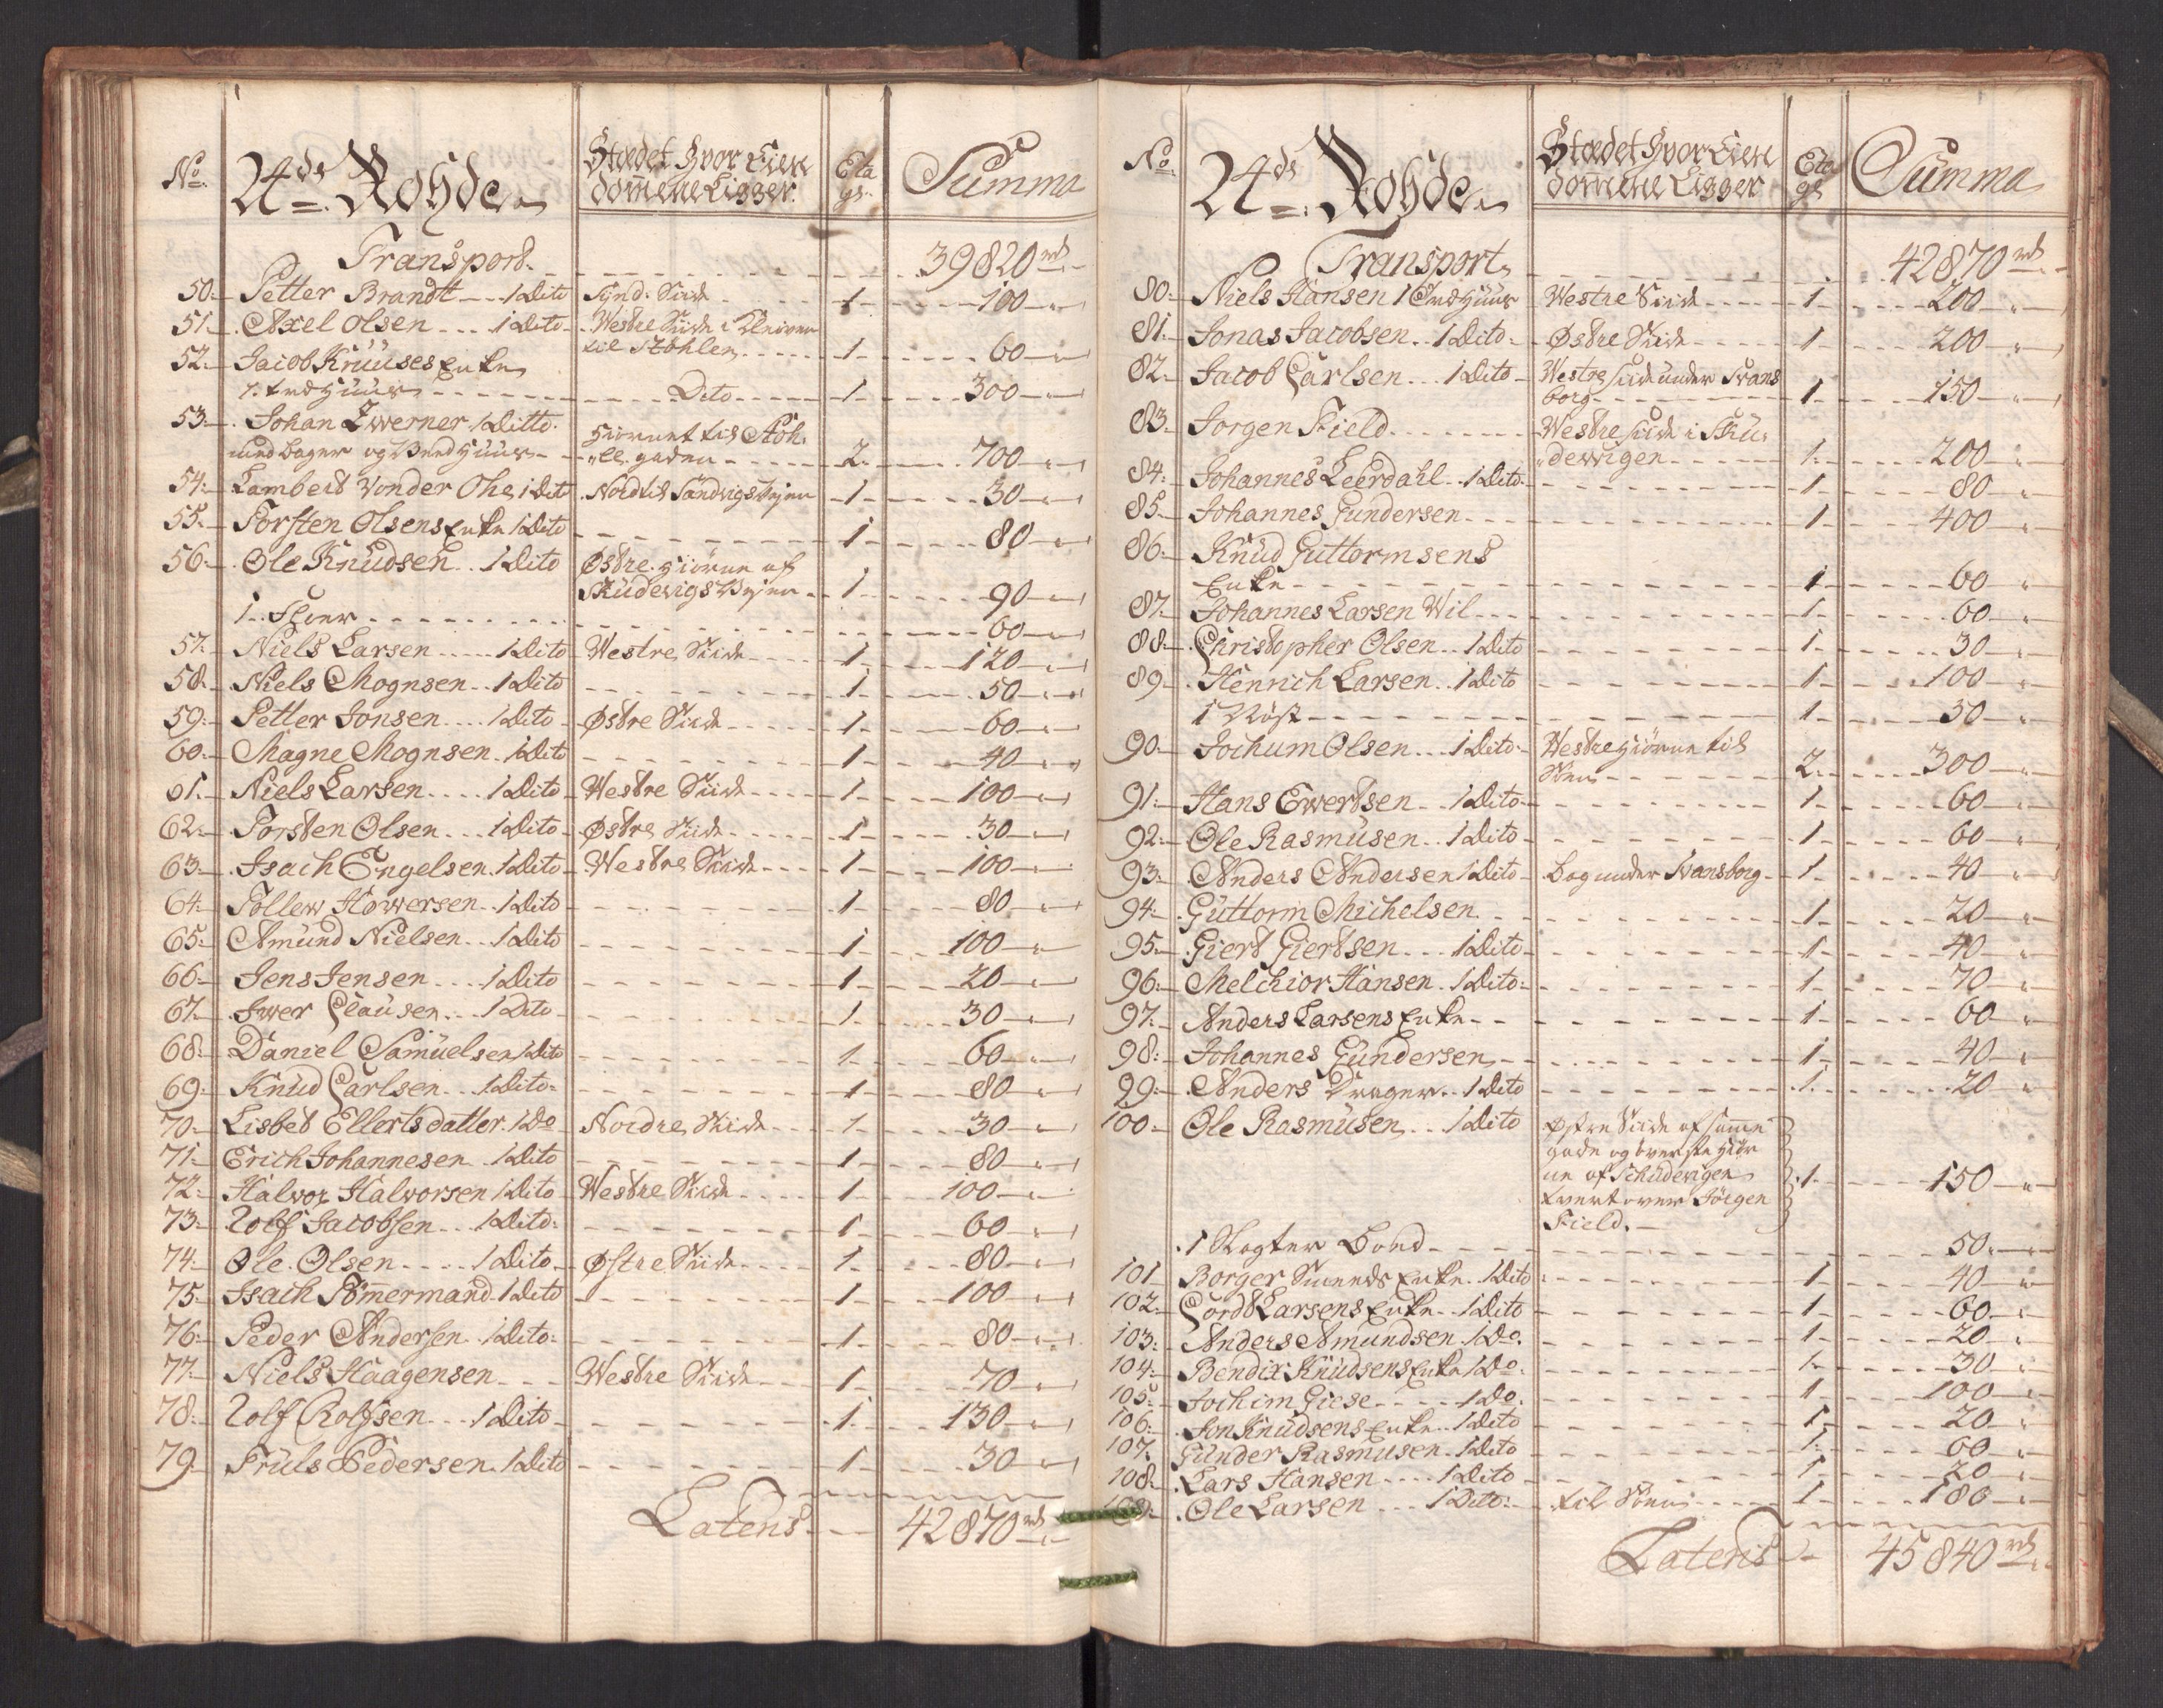 No. 24de Rohde. Stædet hvor Eien Eta Summa
dommene Ligger. ges.
Transport. 39820 rd
50. Petter Brandt 1 Dito Synd: Siide 1 100
51. Axel Olsen 1 Dito Westre Siide i Kleiven
til Støhlen 1 60
52. Jacob Kruuses Enke
1. Træhuus Dito 1 300
53. Johan Zwerner 1 Ditto Hiørnet til Støh.
med bager og Brendhuus le gaden 2. 700
54. Lambert Vonder Ohe 1 Dito Nord til Sandvigs Vejen 1 30
55. Torsten Olsens Enke 1 Dito 1 80
56. Ole Knudsen 1 Dito Østre Hiørne af
Skudevigs Vejen 1 90
1. 60
57. Niels Larsen 1 Dito Westre Siide 1 120
58. Niels Mognsen 1 Dito 1 50
59. Petter Jonsen 1 Dito Østre Siide 1 60
60. Magne Mognsen 1 Dito 1 40
61. Niels Larsen 1 Dito Westre Siide 1 100
62. Torsten Olsen 1 Dito Østre Siide 1 30
63. Isach Engelsen 1 Dito Westre Siide 1 100
64. Tollew Howersen 1 Dito 1 80
65. Amund Nielsen 1 Dito 1 100
66. Jens Jensen 1 Dito 1 20
67. Iwer Clausen 1 Dito 1 30
68. Daniel Samuelsen 1 Dito 1 60
69. Knud Carlsen 1 Dito 1 80
70. Lisbet Ellerts datter 1 Do Nordre Siide 1 30
71. Erich Johannesen 1 Dito 1 80
72. Halvor Halvorsen 1 Dito Westre Siide 1 100
73. Rolf Jacobsen 1 Dito 1 60
74. Ole Olsen 1 Dito Østre Siide 1 80
75. Isach Tømmermand 1 Dito 1 100
76. Peder Andersen 1 Dito 1 80
77. Niels Haagensen Westre Siide 1 70
78. Rolf Rolfsen 1 Dito 1 130
79. Truls Pedersen 1 Dito 1 30
Latens 42870 rd
No. 24de Rohde. Stædet hvor Eien Eta Summa
dommene Ligger ges
Transport 42870 rd
80. Niels Hansen 1 Træhuus Westre Siide 1 200
81. Jonas Jacobsen 1 Dito Østre Siide 1 200
82. Jacob Carlsen 1 Dito Westre Siide under Svans
borg 1 150
83. Jorgen Field Westre Siide i Sku
devigen 1. 200
84. Johannes Leerdahl 1 Dito 1 80
85. Johannes Gundersen 1 400
86. Knud Guttormsens
Enke 1 60
87. Johannes Larsen Wil 1 60
88. Christopher Olsen 1 Dito 1 30
89. Henrich Larsen 1 Dito 1 100
1 Nøst 1 30
90. Jochum Olsen 1 Dito Westre Hiørne til
Søen 2. 300
91. Hans Ewertsen 1 Dito 1 60
92. Ole Rasmusen 1 Dito 1 60
93. Anders Andersen 1 Dito bag under Svansborg 1 40
94. Guttorm Michelsen 1 20
95. Giert Giertsen 1 Dito 1 40
96. Melchior Hansen 1 Dito 1 70
97. Anders Larsens Enke 1 60
98. Johannes Gundersen 1 40
99. Anders Drager 1 Dito 1. 20
100. Ole Rasmusen 1 Dito Østre Siide af samme
gade og øverste Hiør
ne af Schudevigen
tvert over Jørgen 1 150
Field.
1 Slagter Boed 50
101 Borger Svends Enke 1 Dito 1 40
102. Cordt Larsens Enke 1 Dito 1 60
103. Anders Amundsen 1 Do. 1 20
104. Bendix Knudsens Enke 1 Do. 1 30
105. Jochim Giese 1 Do. 1 100
106. Jon Knudsens Enke 1 Dito 1 20
107. Gunder Rasmusen 1 Dito 1 60
108. Lars Hansen 1 Dito 1 20
109. Ole Larsen 1 Dito til Søen 1 180
Latens 45840 rd